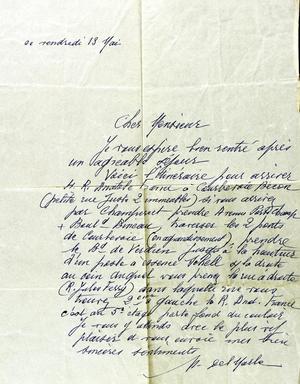 ce vendredi 13 Mai
Cher Monsieur
Je vous espère bien rentré après
un agréable séjour
Voici l'itinéraire pour arriver
4 R. Anatole France à Courbevoie Bécon
(petite rue juste 2 immeubles) si vous arrivez
par Champerret prendre Avenue
+ Boul^d Bineau, traverser les 2 ponts
de Courbevoie prendre
le B^d de Verdun jusqu'à la hauteur
d'un poste à essence Shell à la droite
au coin duquel vous prenez la rue à droite
(R. Jules Ferry) dans laquelle
trouvez 2^ème gauche la R. Anat. France
c'est au 5^e étage porte fond du couloir
Je vous attends avec le plus vif
plaisir et vous envoie mes bien
sincères sentiments